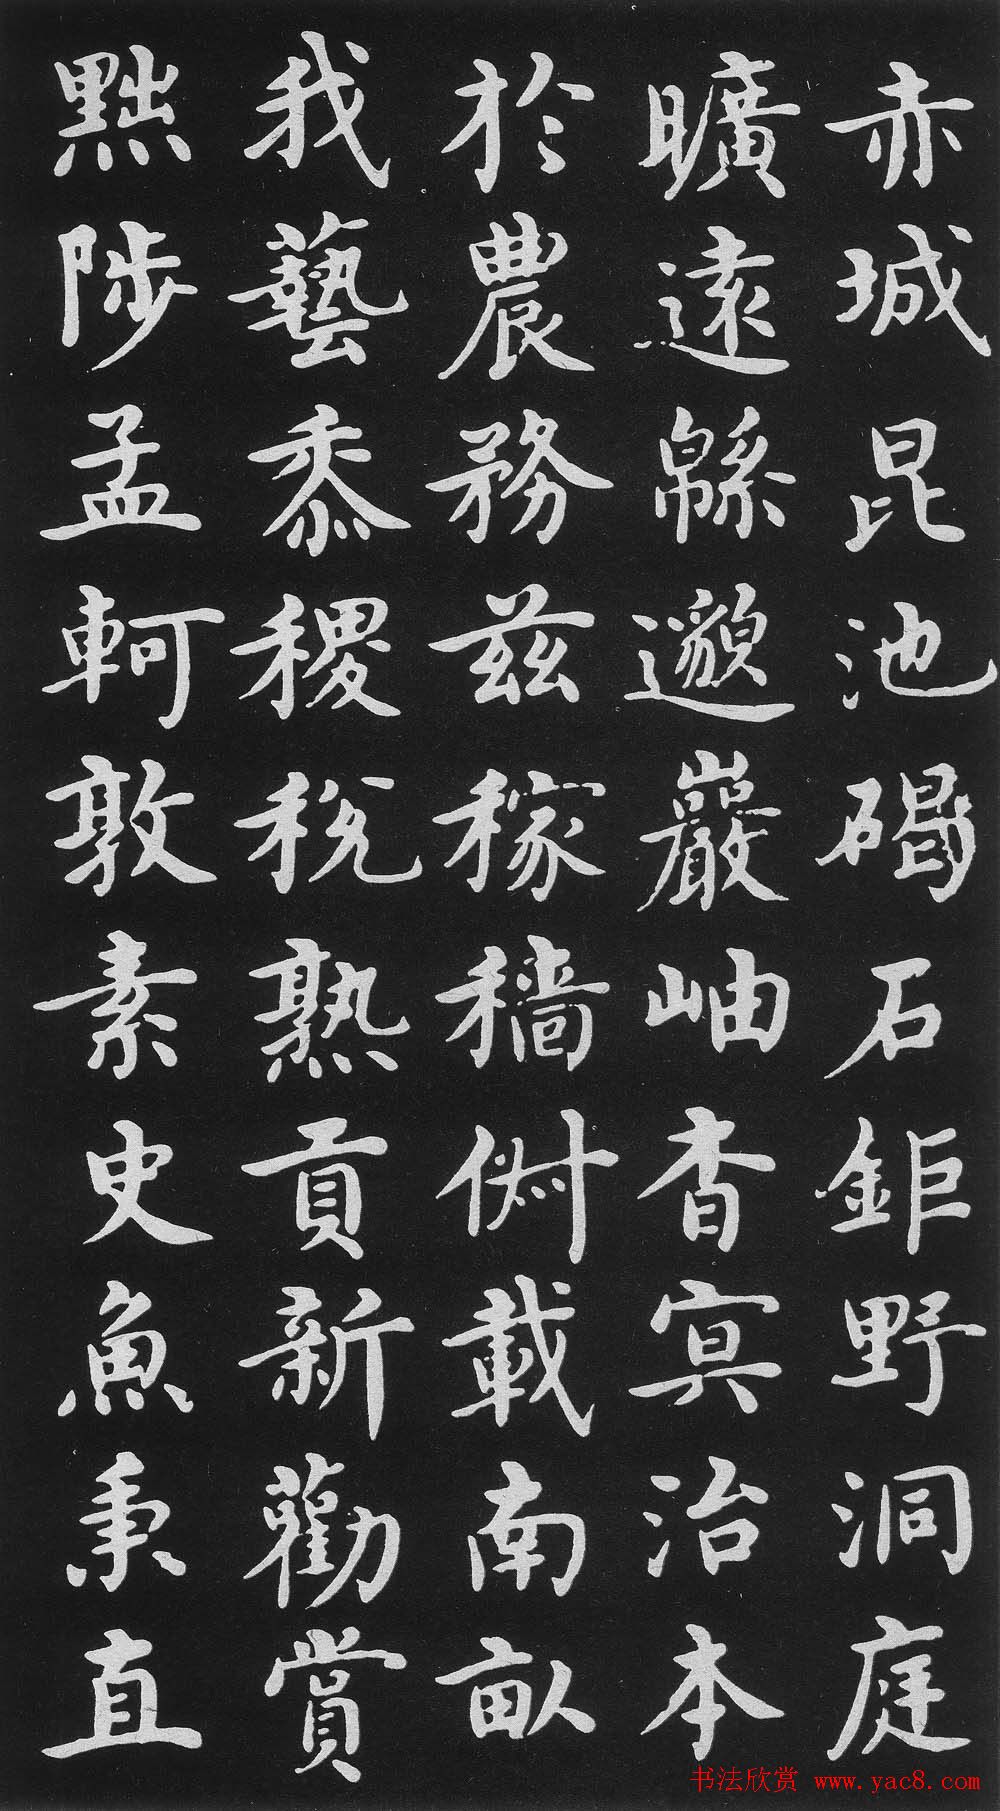 赤城昆池碣石鉅野洞庭
曠遠緜邈巖岫杳冥治本
於農務茲稼穡俶載南畝
我藝黍稷稅熟貢新勸賞
黜陟孟軻敦素史魚秉直
书法欣赏 www.yac8.com